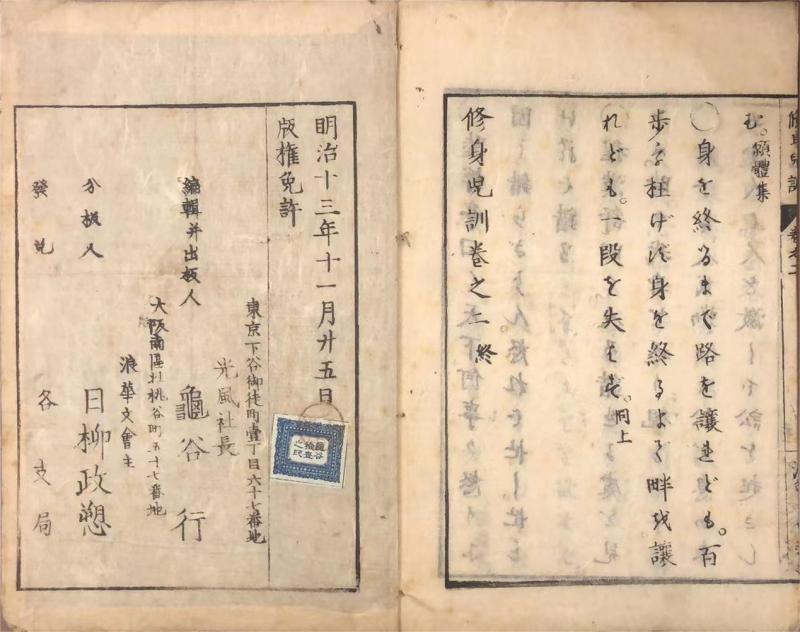 む。願體集
〇身を終るまで路を讓れども。百
歩を枉げず身を終るまで畔を讓
れども。一段を失はず。同上
修身児訓巻之二 終
明治十三年十一月廿五日
版権免許
東京下谷御徒町壹丁目六十七番地
光風社長
編輯并出板人 龜谷行
大阪南區
桃谷町五十七番地
浪華文會主
分板人 日柳政愬
發兌 各支局